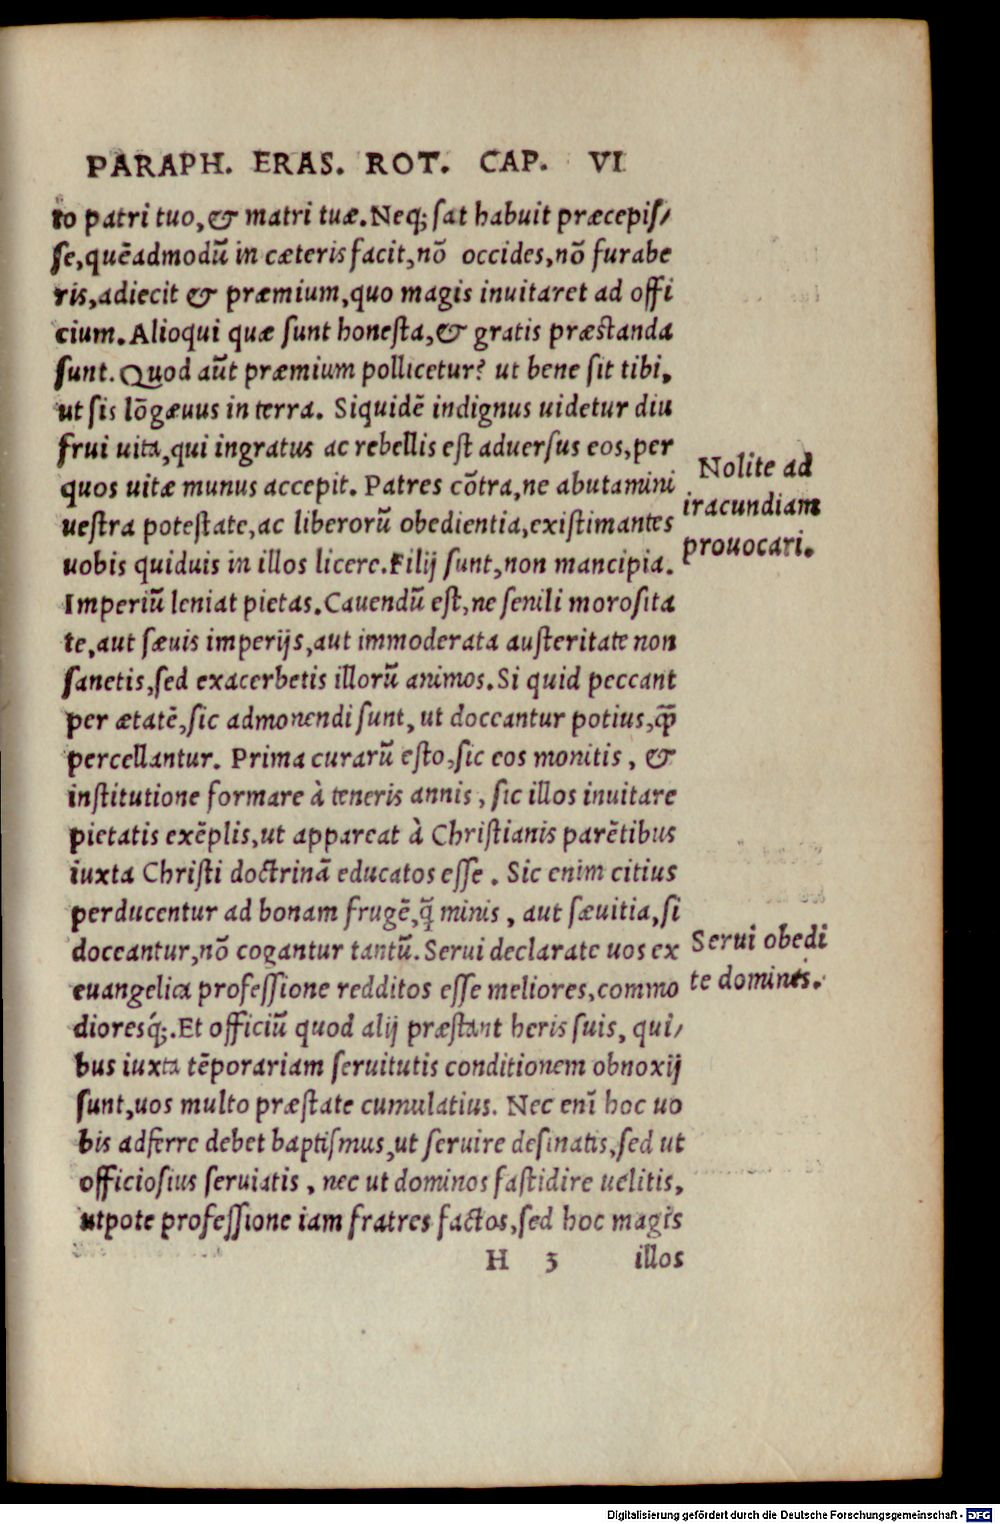 PARAPH. ERAS. ROT. CAP. VI
to patri tuo, & matri tuæ. Neq; sat habuit præcepis/
se, quēadmodū in cæteris facit, nō occides, nō furabe
ris, adiecit & præmium, quo magis inuitaret ad offi
cium. Alioqui quæ sunt honesta, & gratis præstanda
sunt. Quod aūt præmium pollicetur? ut bene sit tibi,
ut sis lōgæuus in terra. Siquidē indignus uidetur diu
frui uita, qui ingratus ac rebellis est aduersus eos, per
quos uitæ munus accepit. Patres cōtra, ne abutamini
uestra potestate, ac liberorū obedientia, existimantes
uobis quiduis in illos licere. Filij sunt, non mancipia.
Imperiū leniat pietas. Cauendū est, ne senili morosita
te, aut sæuis imperijs, aut immoderata austeritate non
sanetis, sed exacerbetis illorū animos. Si quid peccant
per ætatē, sic admonendi sunt, ut doceantur potius, qꝫ̃
percellantur. Prima curarū esto, sic eos monitis, &
institutione formare à teneris annis, sic illos inuitare
pietatis exēplis, ut appareat à Christianis parētibus
iuxta Christi doctrinā educatos esse. Sic enim citius
perducentur ad bonam frugē, q̃ minis, aut sæuitia, si
doceantur, nō cogantur tantū. Serui declarate uos ex
euangelica professione redditos esse meliores, commo
dioresq́;. Et officiū quod alij præstant heris suis, qui/
bus iuxta tēporariam seruitutis conditionem obnoxij
sunt, uos multo præstate cumulatius. Nec enī hoc uo
bis adferre debet baptismus, ut seruire desinatis, sed ut
officiosius seruiatis, nec ut dominos fastidire uelitis,
utpote professione iam fratres factos, sed hoc magis
H 3 illos
Nolite ad
iracundiam
prouocari.
Serui obedi
te dominis.
Digitalisierung gefördert durch die Deutsche Forschungsgemeinschaft - DFG